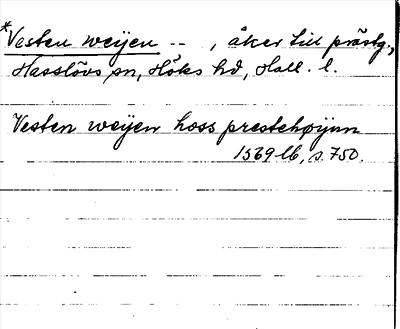 *Vesten weijen -- , åker till prästg.,
Hasslövs sn, Höks hd, Hall. l.
Vesten weijen hoss prestehøijnn
1569 lb, s. 750.